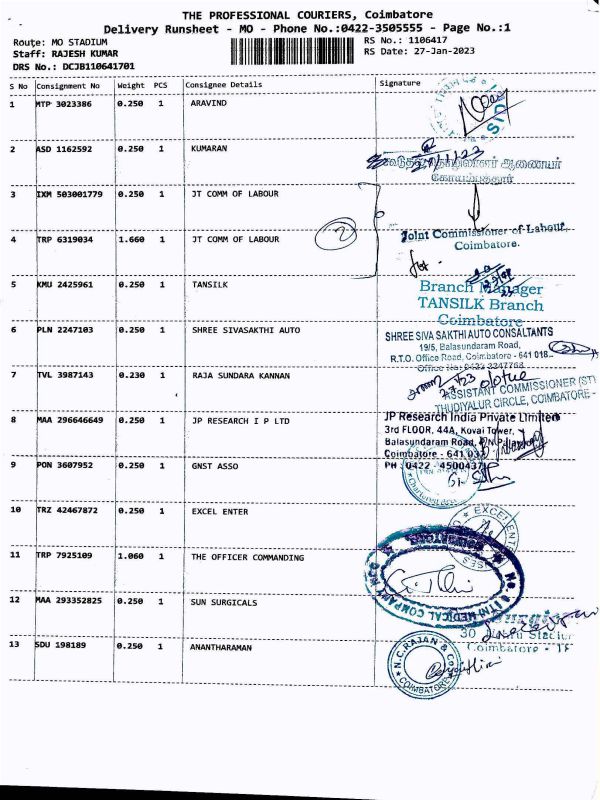 THE PROFESSIONAL COURIERS, Coimbatore
Delivery Runsheet - MO - Phone No.:0422-3505555 - Page No.:1
Route: MO STADIUM
RS No.: 1106417
Staff: RAJESH KUMAR
RS Date: 27-Jan-2023
DRS No.: DCJB110641701
S No Consignment No Weight PCS Consignee Details Signature
1 MTP 3023386 0.250 1 ARAVIND
2 ASD 1162592 0.250 1 KUMARAN
ஆணையர்
கோயம்புத்தூர்
3 IXM 503001779 0.250 1 JT COMM OF LABOUR
2
Joint Commissioner of Labour,
Coimbatore.
4 TRP 6319034 1.660 1 JT COMM OF LABOUR
for
5 KMU 2425961 0.250 1 TANSILK
Branch Manager
TANSILK Branch
Coimbatore
6 PLN 2247103 0.250 1 SHREE SIVASAKTHI AUTO
SHREE SIVA SAKTHI AUTO CONSULTANTS
19/5, Balasundaram Road,
R.T.O. Office Road, Coimbatore - 641 018
Office No: 0422 2247768
7 TVL 3987143 0.230 1 RAJA SUNDARA KANNAN
ASSISTANT COMMISSIONER (ST)
THUDIYALUR CIRCLE, COIMBATORE -
8 MAA 296646649 0.250 1 JP RESEARCH I P LTD
JP Research India Private Limited
3rd FLOOR, 44A, Kovai Tower,
Balasundaram Road, P.N.Palayam
Coimbatore - 641 037
PH : 0422 - 4500437
9 PON 3607952 0.250 1 GNST ASSO
Chartered
10 TRZ 42467872 0.250 1 EXCEL ENTER
EXCEL ENT
11 TRP 7925109 1.060 1 THE OFFICER COMMANDING
MEDICAL COMPANY
12 MAA 293352825 0.250 1 SUN SURGICALS
30
Coimbatore
13 SDU 198189 0.250 1 ANANTHARAMAN
N.C.RAJAN & Co
COIMBATORE